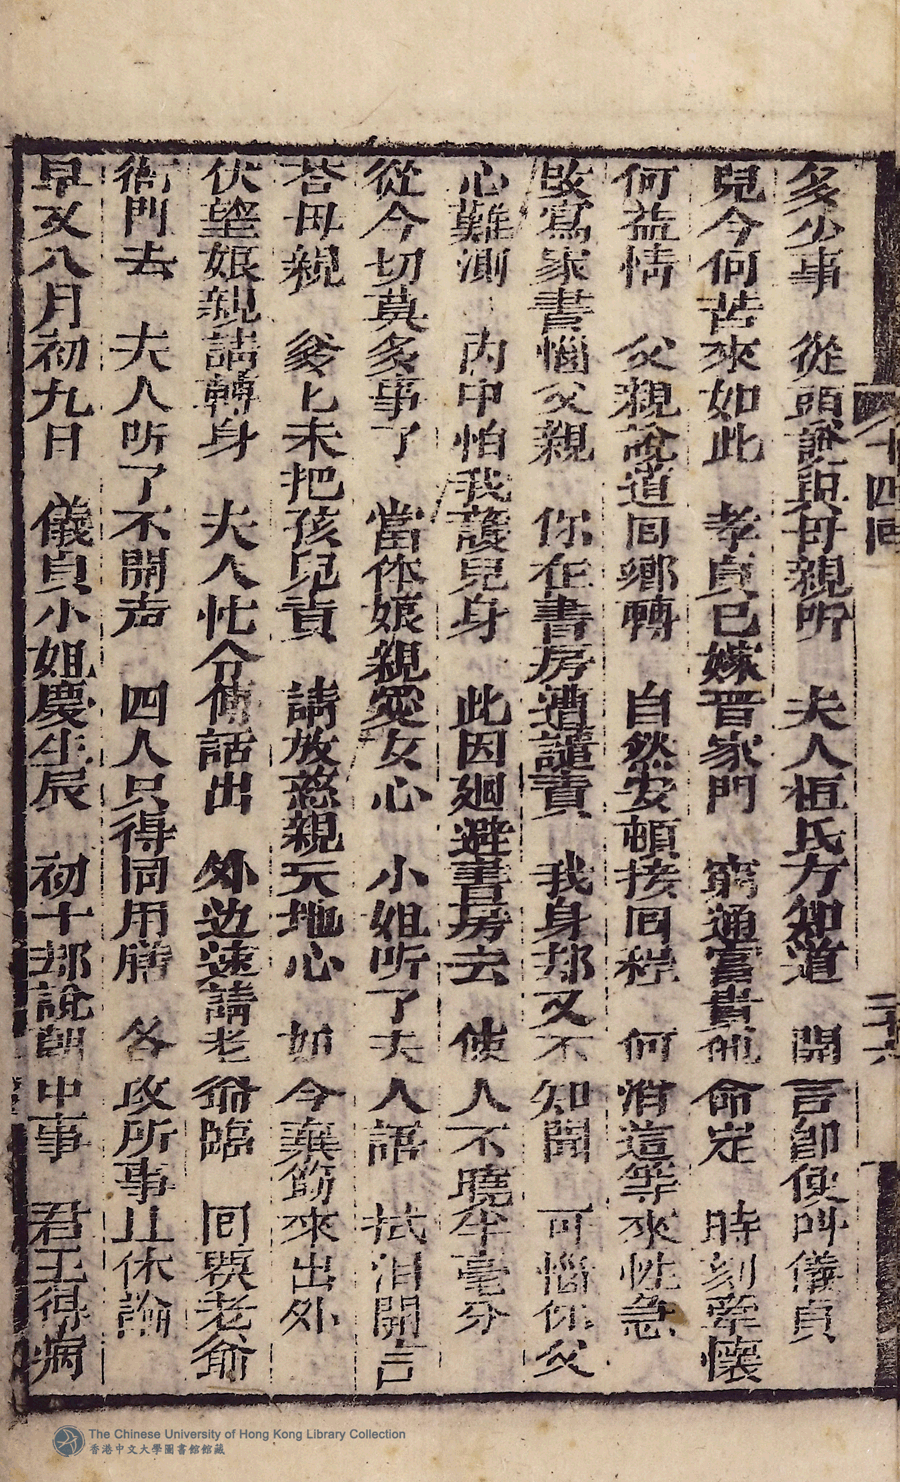 多少事　從頭說與母親听　夫人桓氏方知道　開言卽便叫儀貞
兒今何苦來如此　孝貞已嫁晋家門　窮通富貴他命定　時刻牽懷
何益情　父親說道囘鄉轉　自然安頓接囘程　何消這等來性急
故寫家書惱父親　你在書房遭譴責　我身却又不知聞　可惱你父
心難測　內中怕我護兒身　此因廻避書房去　使人不曉半毫分
從今切莫多事了　當体娘親愛女心　小姐听了夫人語　拭泪開言
荅母親　爹匕未把孩兒責　請放慈親天地心　如今裝飭來出外
伏望娘親請轉身　夫人忙分傳話出　外边速請老爺臨　囘娛老爺
衙門去　夫人听了不開声　四人只得同用膳　各攻所事且休論
早又八月初九日　儀貞小姐慶生辰　初十却說朝中事　君王得病
十四囘
二十六
The Chinese University of Hong Kong Library Collection
香港中文大學圖書館館藏